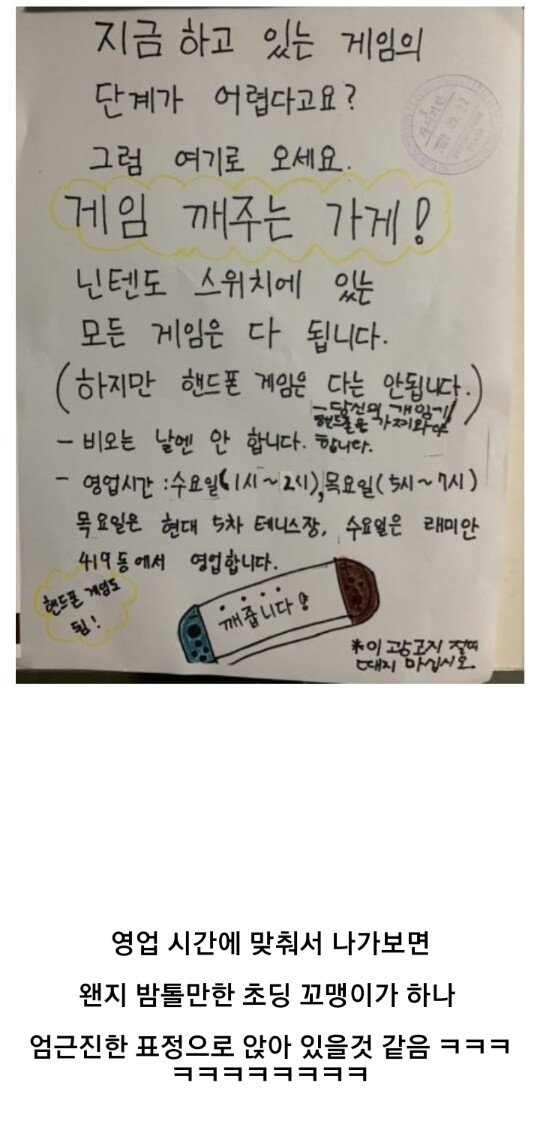 지금 하고 있는 게임의
단계가 어렵다고요?
그럼 여기로 오세요.
게임 깨주는 가게!
닌텐도 스위치에 있는
모든 게임은 다 됩니다.
(하지만 핸드폰 게임은 다는 안됩니다.)
- 당신의 개임기/
핸드폰은 가지와야
합니다.
- 비오는 날엔 안 합니다.
- 영업시간 : 수요일(1시~2시), 목요일(5시~7시)
목요일은 현대 5차 테니스장, 수요일은 래미안
419동에서 영업합니다.
핸드폰 게임도
됨!
깨줍니다!
*이 광고지 절떠
때지 마십시오.
영업 시간에 맞춰서 나가보면
왠지 밤톨만한 초딩 꼬맹이가 하나
엄근진한 표정으로 앉아 있을것 같음 ㅋㅋㅋ
ㅋㅋㅋㅋㅋㅋㅋㅋ